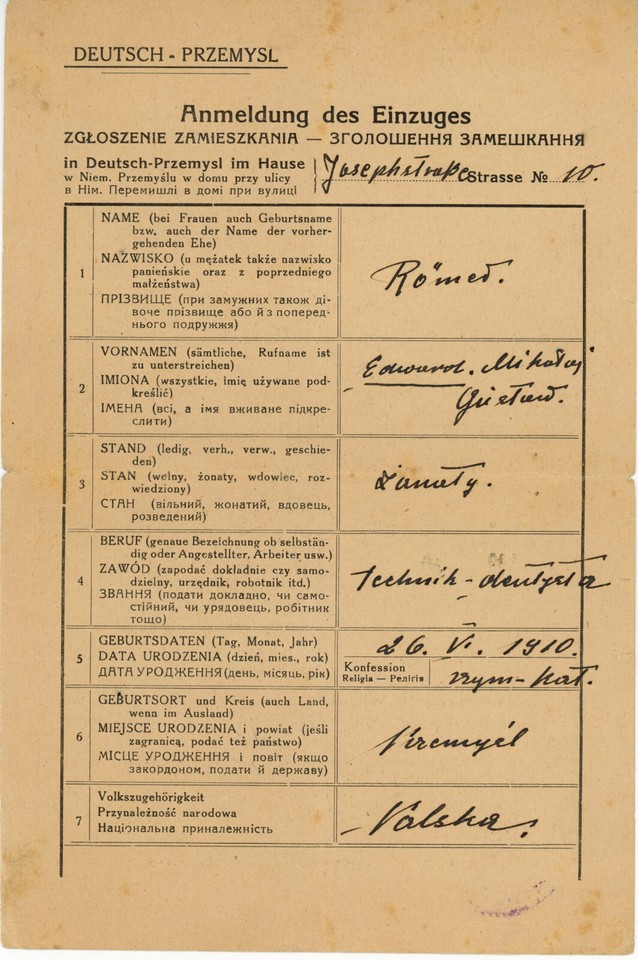 DEUTSCH - PRZEMYSL
Anmeldung des Einzuges
ZGŁOSZENIE ZAMIESZKANIA — ЗГОЛОШЕННЯ ЗАМЕШКАННЯ
in Deutsch-Przemysl im Hause
w Niem. Przemyślu w domu przy ulicy
в Нім. Перемишлі в домі при вулиці
Josephstraße Strasse № 10.
1
NAME (bei Frauen auch Geburtsname
bzw. auch der Name der vorher-
gehenden Ehe)
NAZWISKO (u mężatek także nazwisko
panieńskie oraz z poprzedniego
małżeństwa)
ПРІЗВИЩЕ (при замужних також ді-
воче прізвище або й з поперед-
нього подружжя)
Römed.
2
VORNAMEN (sämtliche, Rufname ist
zu unterstreichen)
IMIONA (wszystkie, imię używane pod-
kreślić)
ІМЕНА (всі, а імя вживане підкре-
слити)
Edward. Mikołaj
Gustaw.
3
STAND (ledig, verh., verw., geschie-
den)
STAN (wolny, żonaty, wdowiec, roz-
wiedziony)
СТАН (вільний, жонатий, вдовець,
розведений)
żonaty.
4
BERUF (genaue Bezeichnung ob selbstän-
dig oder Angestellter, Arbeiter usw.)
ZAWÓD (zapodać dokładnie czy samo-
dzielny, urzędnik, robotnik itd.)
ЗВАННЯ (подати докладно, чи само-
стійний, чи урядовець, робітник
тощо)
technik-dentysta
5
GEBURTSDATEN (Tag, Monat, Jahr)
DATA URODZENIA (dzień, mies., rok)
ДАТА УРОДЖЕННЯ (день, місяць, рік)
26. VI. 1910.
Konfession
Religia — Релігія
rzym-kat.
6
GEBURTSORT und Kreis (auch Land,
wenn im Ausland)
MIEJSCE URODZENIA i powiat (jeśli
zagranicą, podać też państwo)
МІСЦЕ УРОДЖЕННЯ і повіт (якщо
закордоном, подати й державу)
7
Volkszugehörigkeit
Przynależność narodowa
Національна приналежність
Polska.